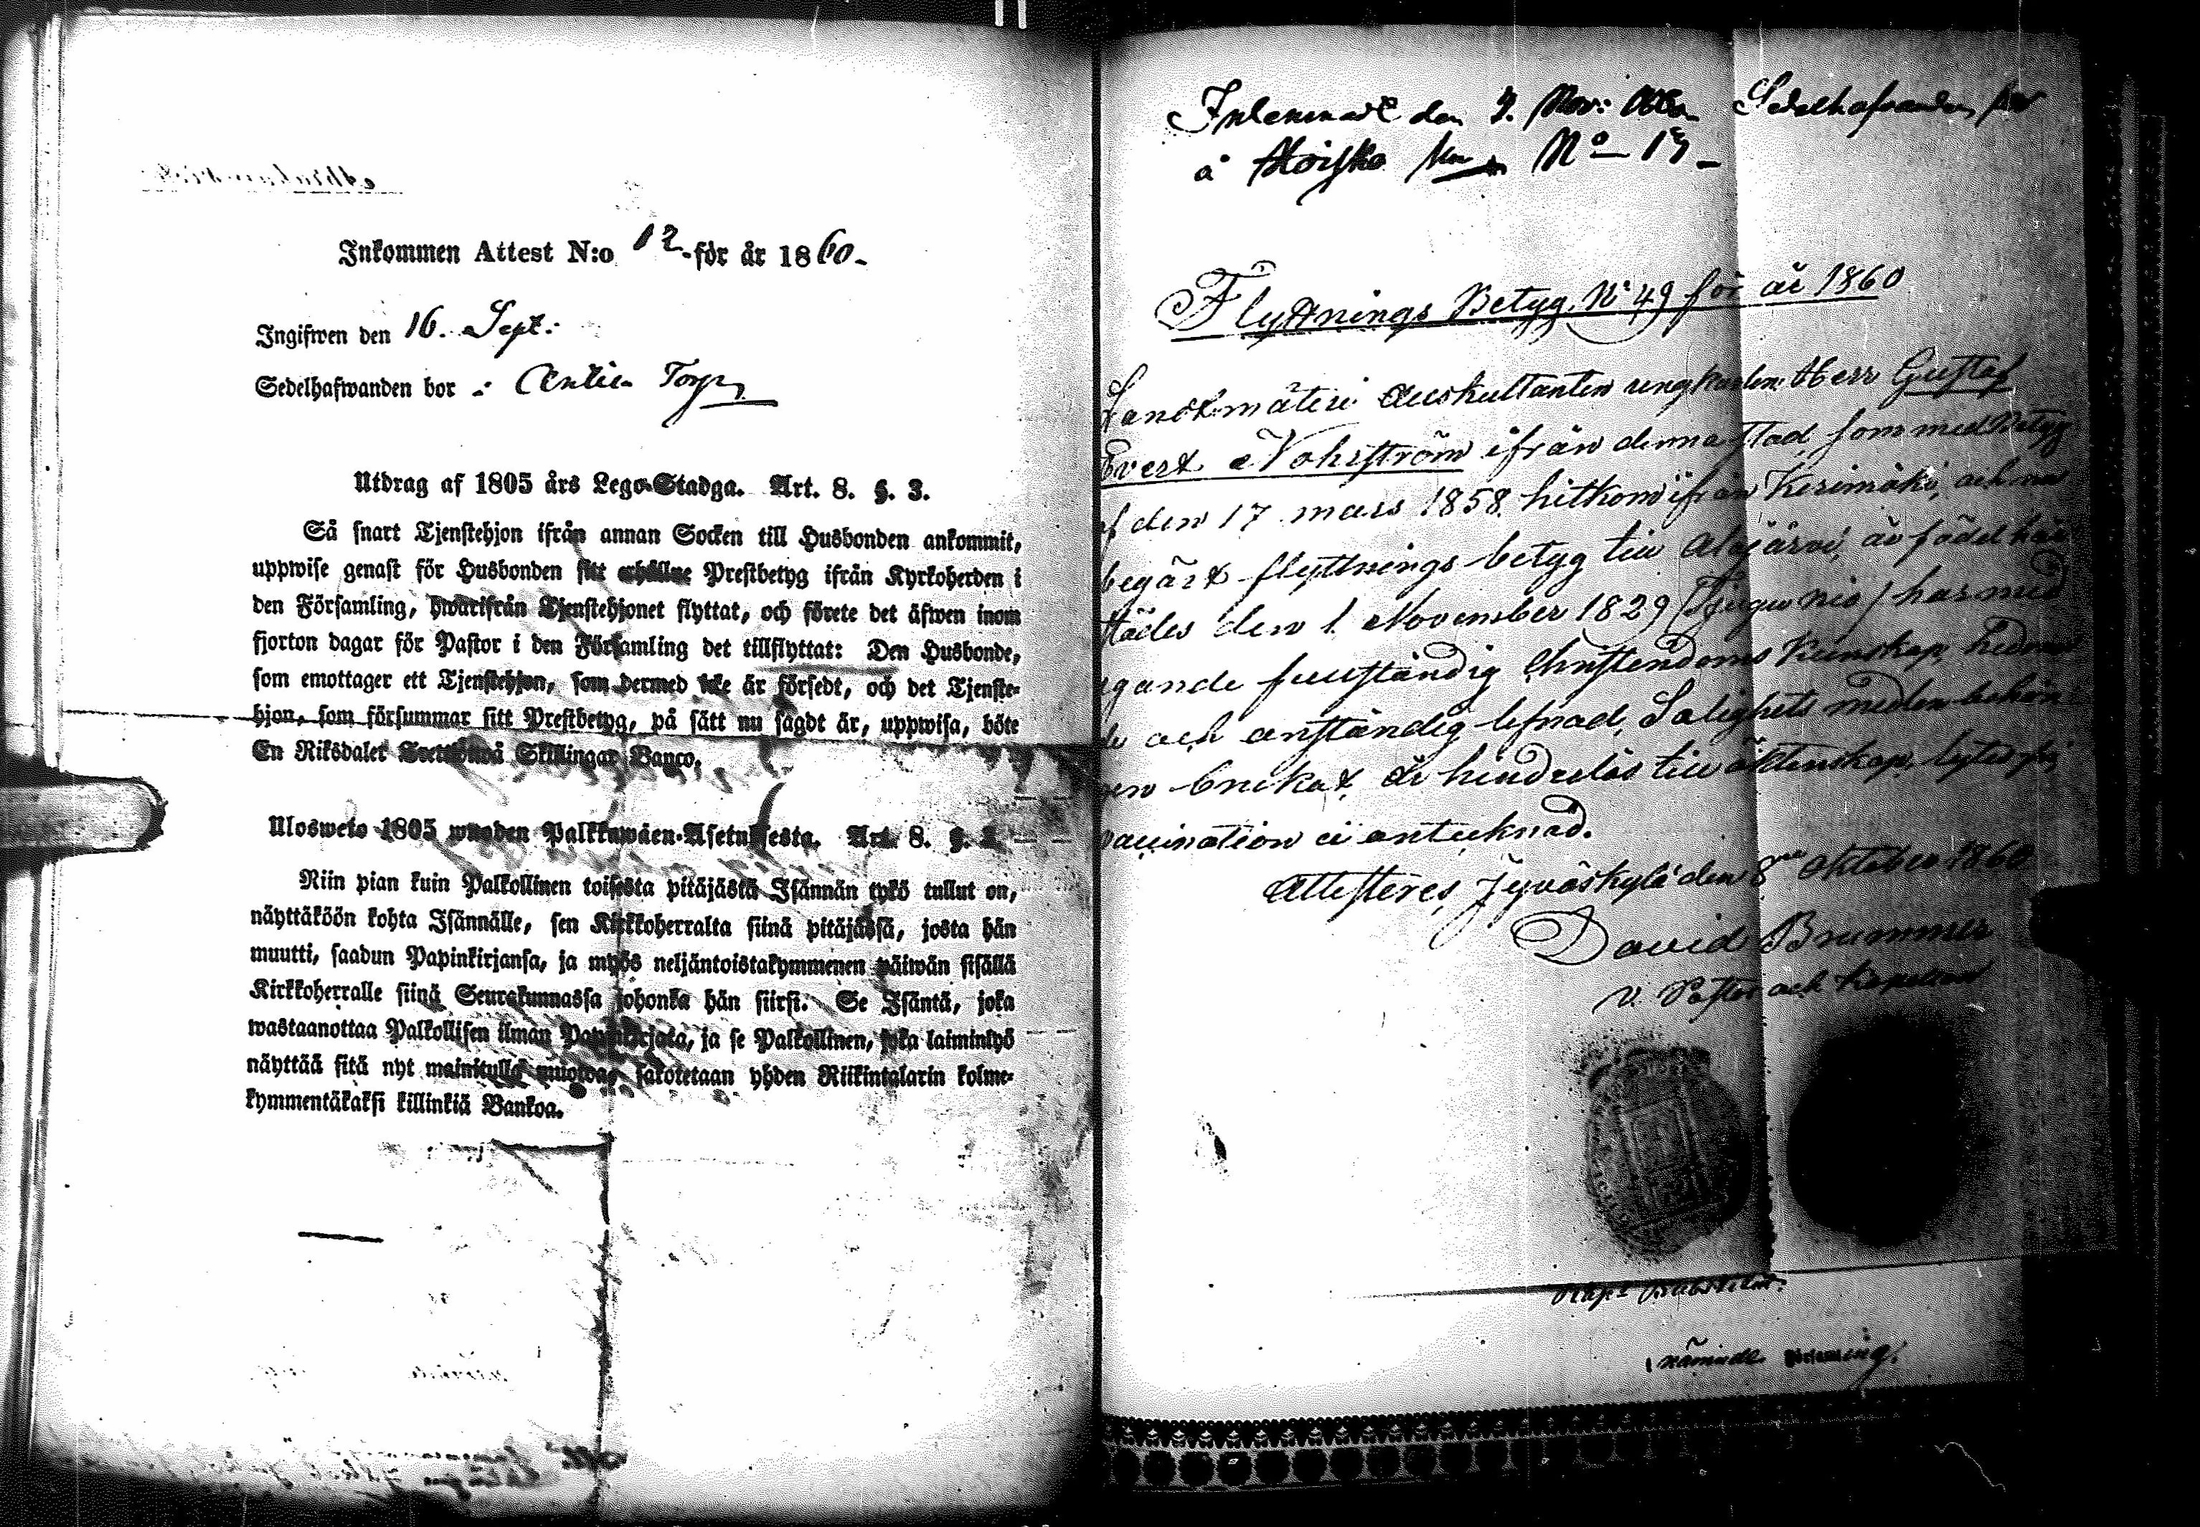 Inkommen Attest N:o 12 för år 1860
Ingifwen den 16. Sept:
Sedelhafwanden bor : Torp
Utdrag af 1805 års Lego-Stadga. Art. 8. §. 3.
Så snart Tjenstehjon ifrån annan Socken till Husbonden ankommit,
uppwise genast för Husbonden sitt erhållne Prestbetyg ifrån Kyrkoherden i
den Församling, hwarifrån Tjenstehjonet flyttat, och förete det äfwen inom
fjorton dagar för Pastor i den Församling det tillflyttat: Den Husbonde,
som emottager ett Tjenstehjon, som dermed icke är försedt, och det Tjenste-
hjon, som försummar sitt Prestbetyg, på sätt nu sagdt är, uppwisa, böte
En Riksdaler Skillingar Banco.
Ulosweto 1805 wuoden Palkkawäen-Asetuksesta. Art. 8. §.
Niin pian kuin Palkollinen toisesta pitäjästä Isännän tykö tullut on,
näyttäköön kohta Isännälle, sen Kirkkoherralta siinä pitäjässä, josta hän
muutti, saadun Papinkirjansa, ja myös neljäntoistakymmenen päiwän sisällä
Kirkkoherralle siinä Seurakunnassa johonka hän siirsi. Se Isäntä, joka
wastaanottaa Palkollisen ilman Papinkirjata, ja se Palkollinen, joka laiminlyö
näyttää sitä nyt mainitulla muotoa, sakotetaan yhden Riikintalarin kolme-
kymmentäkaksi killinkiä Bankoa.
Inlemnadt den Nov: Sedelhafvanden bor
å Hoisko N:o
Flyttnings Betyg. N:o 49 för år 1860
Landtmäteri Auskultanten ungkarlen Herr Gustaf
Evert Nohrström ifrån denna stad, som med Betyg
af den 17 mars 1858 hitkom ifrån Kerimäki, och nu
begärt flyttnings betyg till Alajärvi, är född här
städes den 1 November 1829 (Tjugu nio) har med
ägande fullständig Christendoms Kunskap,
och anständig lefnad, Salighets medlen behöri-
gen brukat, är hindrslös till äktenskap,
vaccination ei antecknad.
Attesteres, Jyväskylä den 8 Oktober 1860
David Brummer
v. Pastor och Kapellan
nämnde